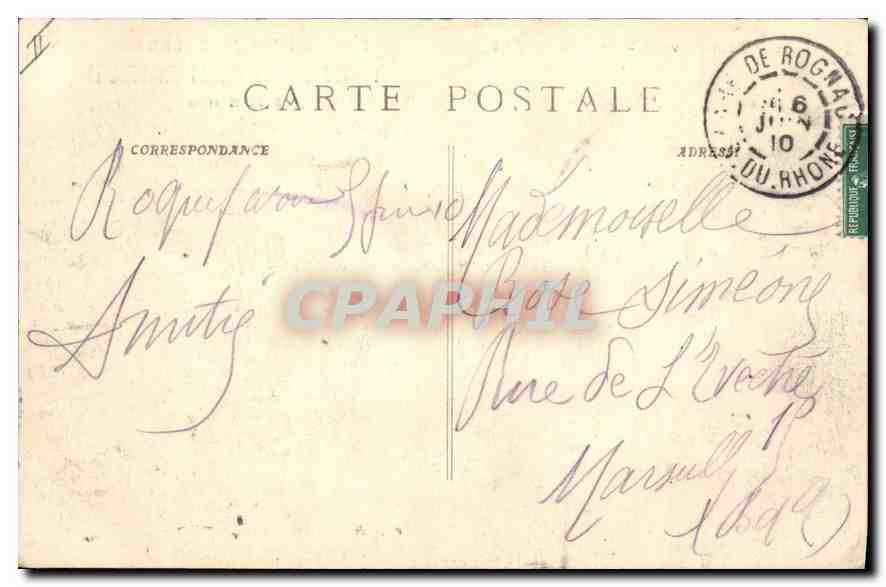 II
CARTE POSTALE
CORRESPONDANCE
ADRESSE
DE ROGNAC
6
JUIN
10
DU RHONE
REPUBLIQUE FRANÇAISE
Roquefavour juin 10
Amitié
Mademoiselle
Rose Siméone
Rue de L'Evêché
Marseille
(Bdr)
CPAPHIL